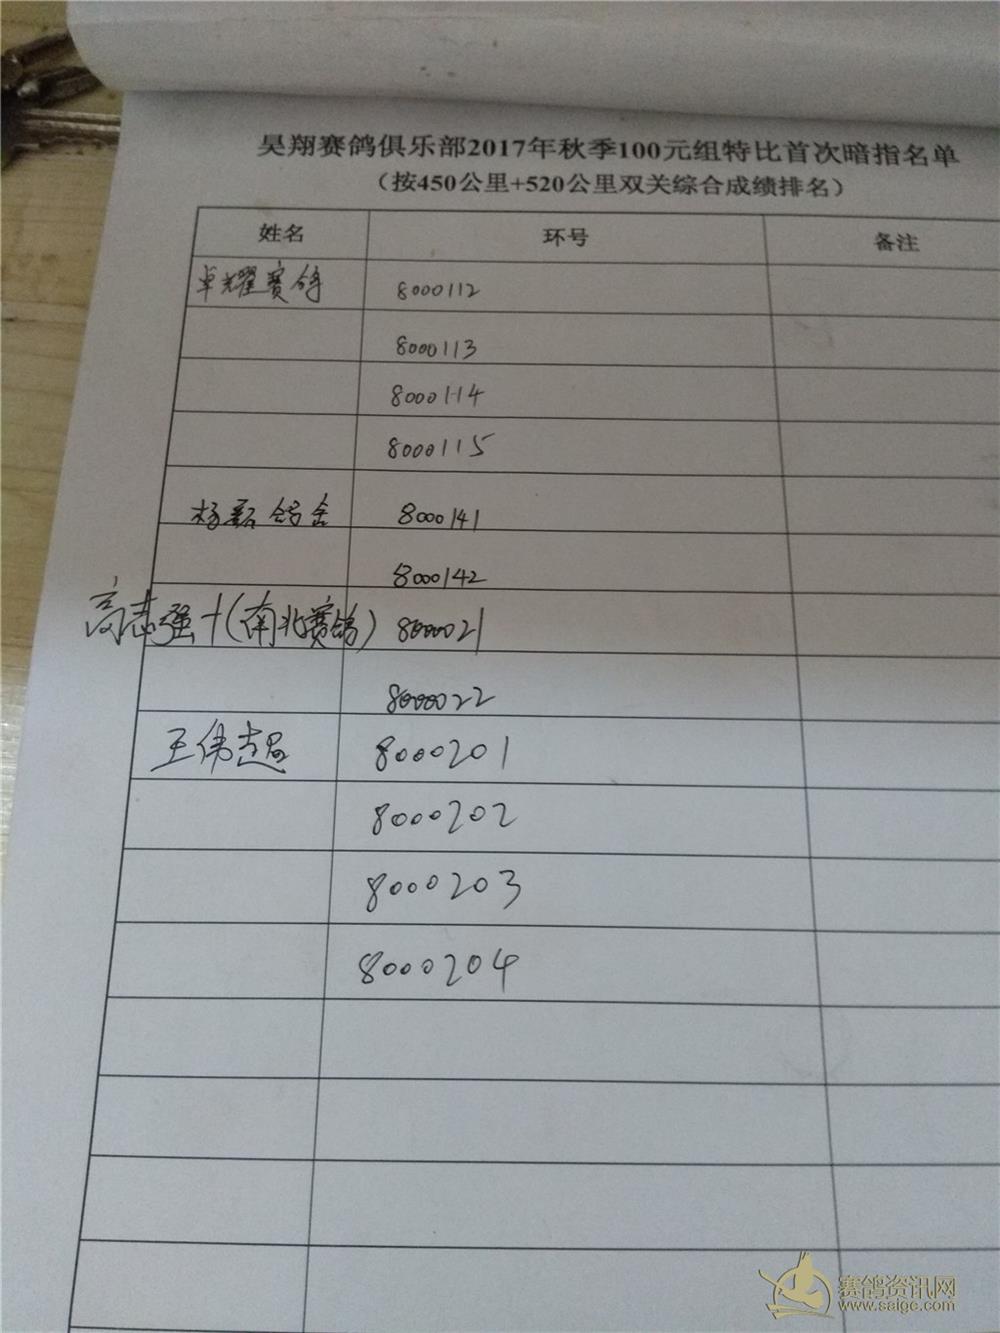 昊翔赛鸽俱乐部2017年秋季100元组特比首次暗指名单
（按450公里+520公里双关综合成绩排名）
姓名 环号 备注
卓耀赛鸽 8000112
8000113
8000114
8000115
杨 鸽舍 8000141
8000142
高志强+(南北赛鸽) 8000021
8000022
王伟超 8000201
8000202
8000203
8000204
赛鸽资讯网
www.saige.com